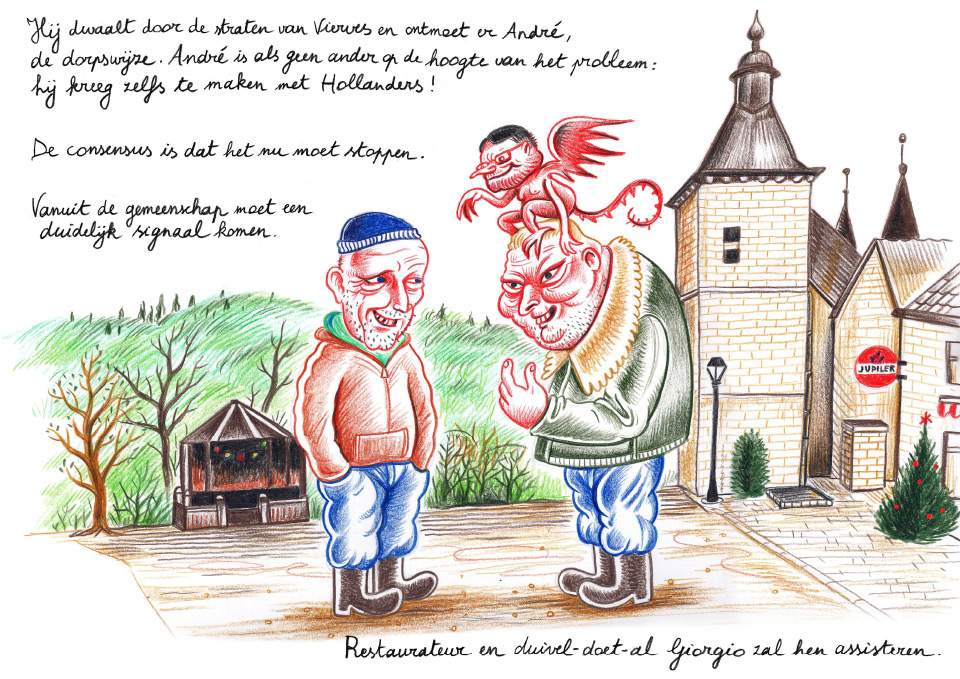 Hij dwaalt door de straten van Vierves en ontmoet er André,
de dorpswijze. André is als geen ander op de hoogte van het probleem:
hij kreeg zelfs te maken met Hollanders!
De consensus is dat het nu moet stoppen.
Vanuit de gemeenschap moet een
duidelijk signaal komen.
JUPILER
Restaurateur en duivel-doet-al Giorgio zal hen assisteren.